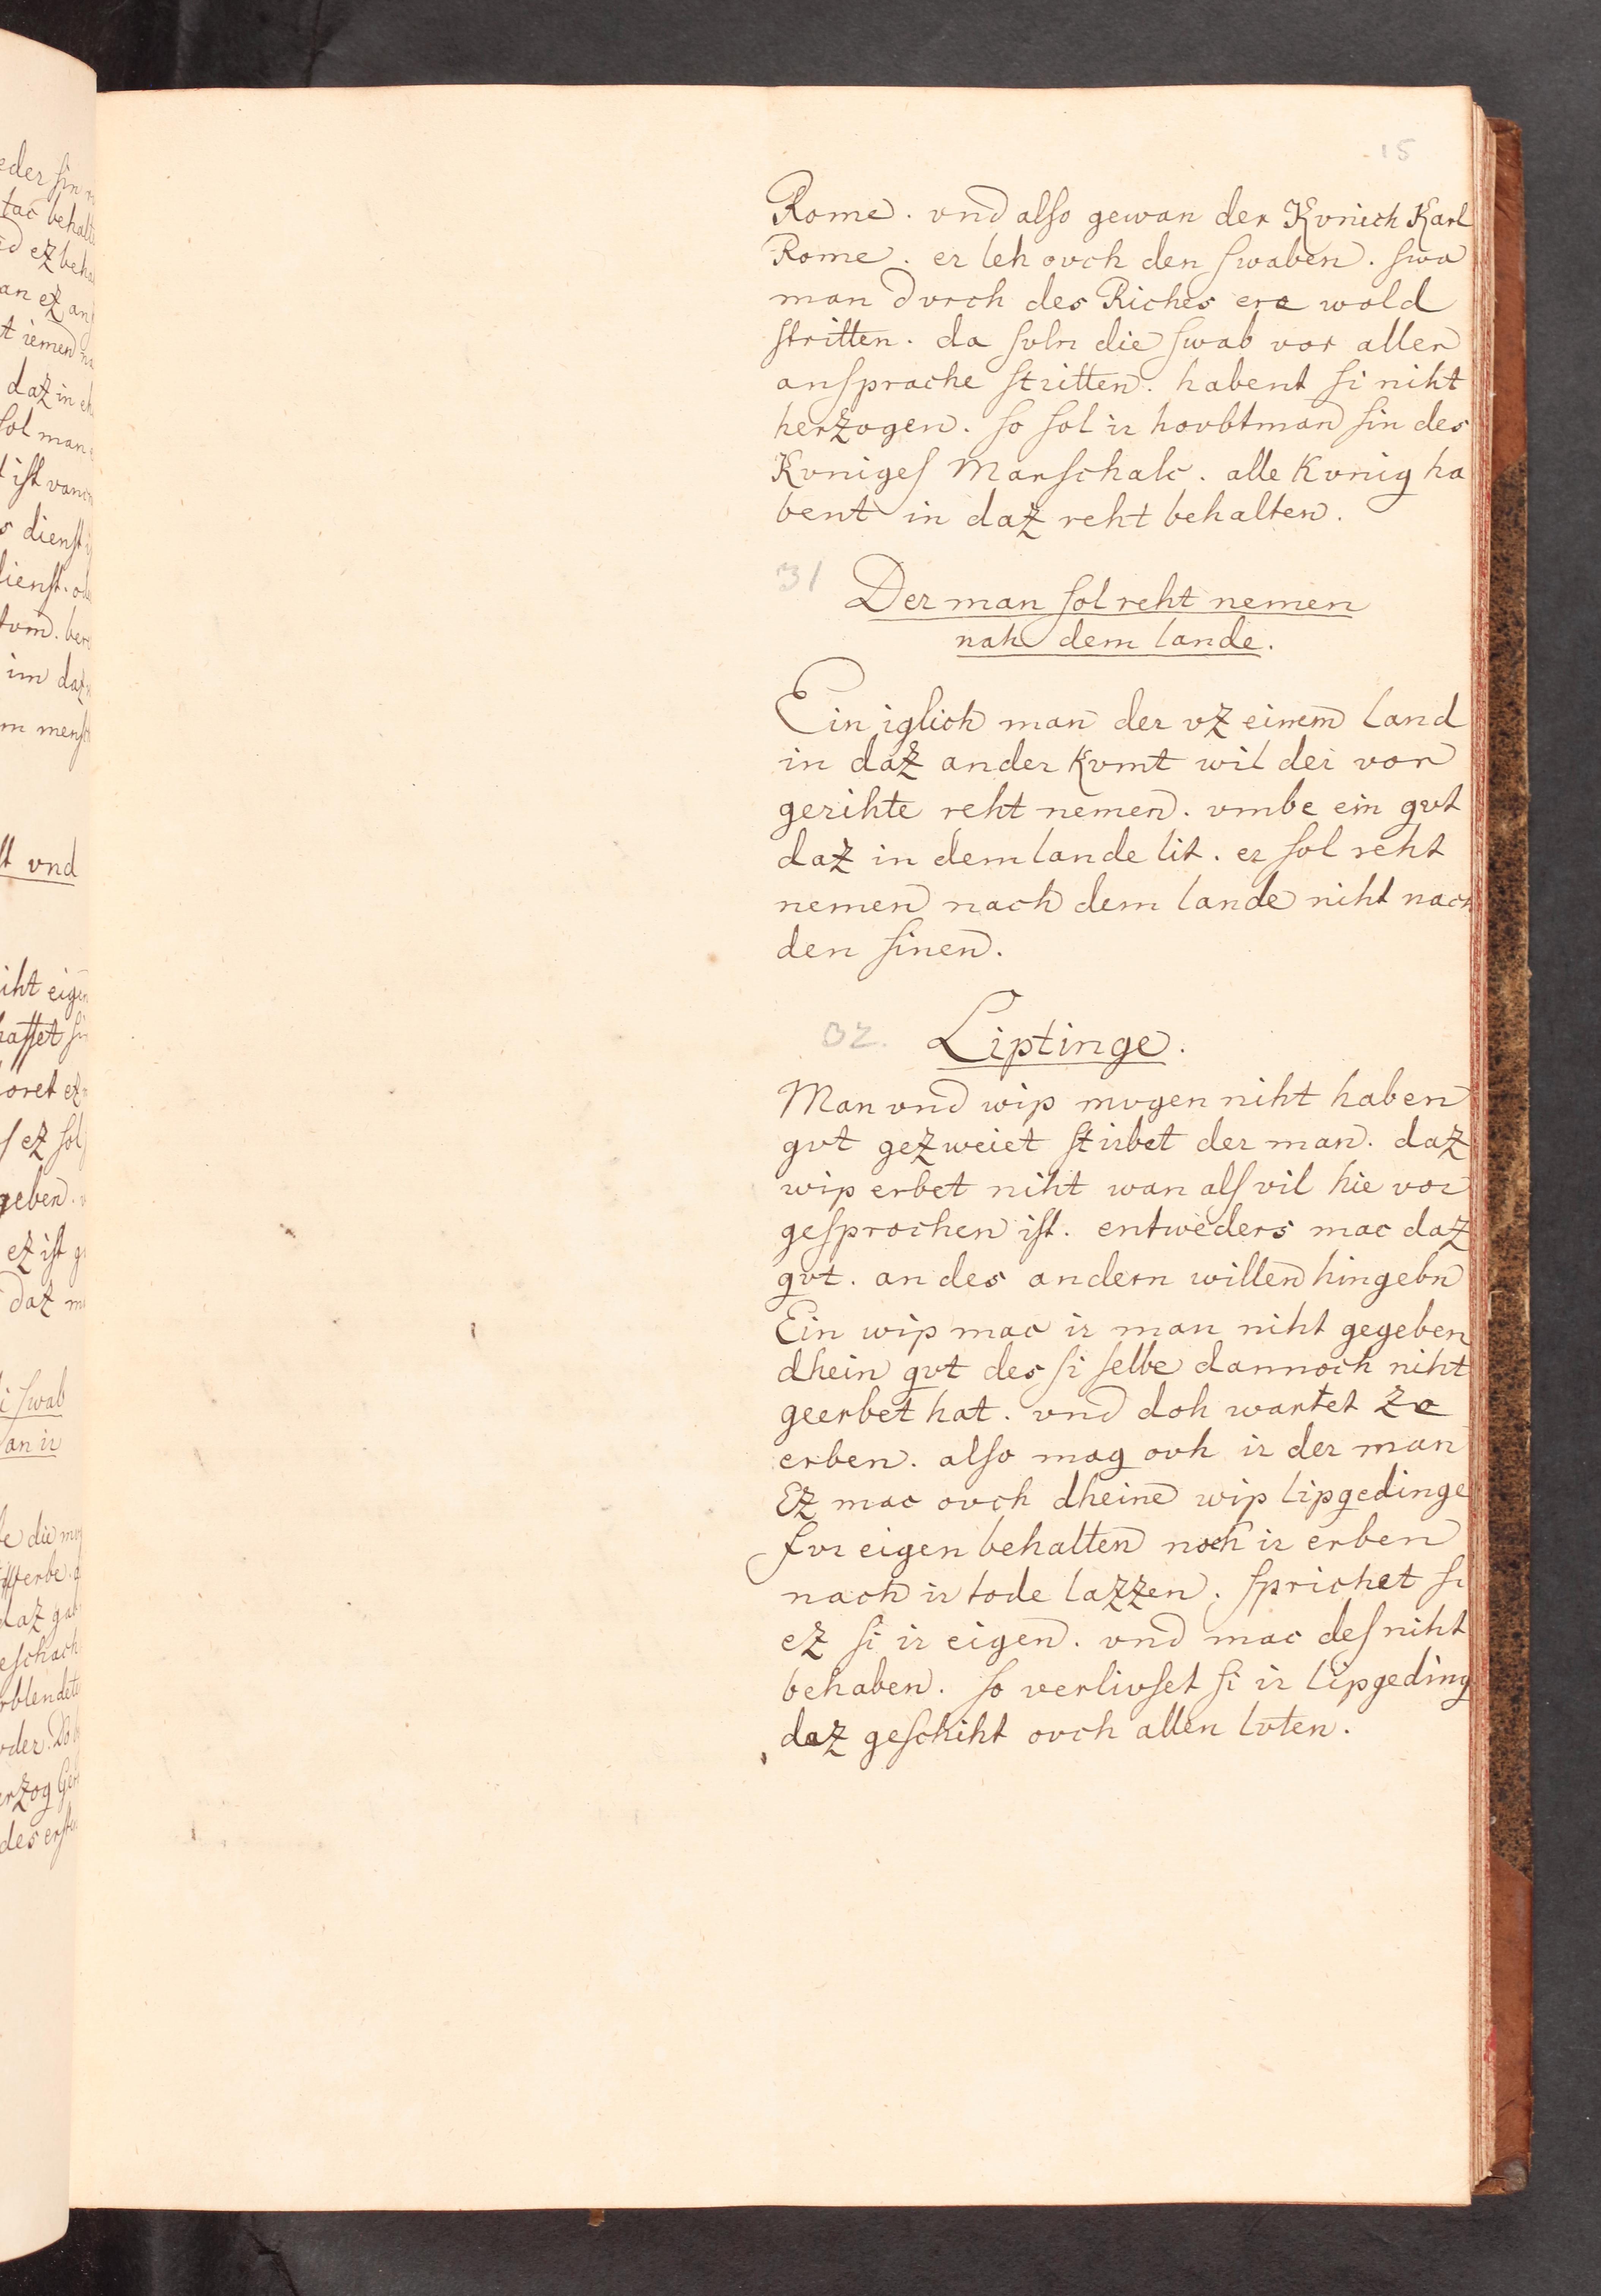 15
Rome. vnd alſo gewan der Kvnich Karl
Rome. er leh ovch den ſwaben. ſwa
man dvrch des Riches ere wold
ſtritten. da ſvln die ſwab vor aller
anſprache ſtritten. habent ſi niht
herzogen. ſo ſol ir hovbtman ſin des
Kvnigeſ Marſchalc. alle Kvnig ha
bent in daz reht behalten.
31
Der man ſol reht nemen
nah dem lande.
Ein iglich man der vz einem land
in daz ander kvmt wil der vor
gerihte reht nemen. vmbe ein gvt
daz in dem lande lit. er ſol reht
nemen nach dem lande niht nach
den ſinen.
32. Liptinge.
Man vnd wip mvgen niht haben
gvt gezweiet ſtirbet der man. daz
wip erbet niht wan alſ vil hie vor
geſprochen iſt. entweders mac daz
gvt. an des andern willen hingebn
Ein wip mac ir man niht gegeben
dhein gvt des ſi ſelbe dannoch niht
geerbet hat. vnd doh wartet ze
erben. alſo mag ovh ir der man
Ez mac ovch dheine wip lipgedinge
fvr eigen behalten noch ir erben
nach ir tode lazzen. ſprichet ſi
ez ſi ir eigen. vnd mac deſ niht
behaben. ſo verlivſet ſi ir lipgeding
daz geſchiht ovch allen lvten.